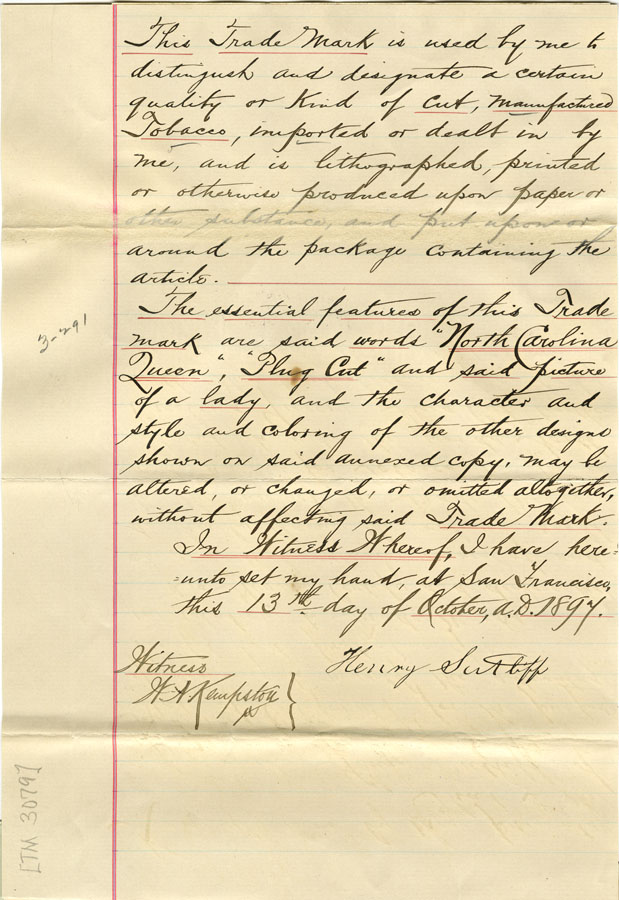 This Trade Mark is used by me to
distinguish and designate a certain
quality or Kind of cut, manufactured
Tobacco, imported or dealt in by
me, and is lithographed, printed
or otherwise produced upon paper or
other substance, and put upon or
around the package containing the
article.
The essential features of this Trade
mark are said words "North Carolina
Queen", "Plug Cut" and said picture
of a lady, and the character and
style and coloring of the other designs
shown on said annexed copy, may be
altered, or changed, or omitted altogether,
without affecting said Trade Mark.
In Witness Whereof, I have here=
=unto set my hand, at San Francisco,
this 13th day of October, A.D. 1897.
Witness
W A Kempston
Henry Sutliff
3-291
[TM 3079]